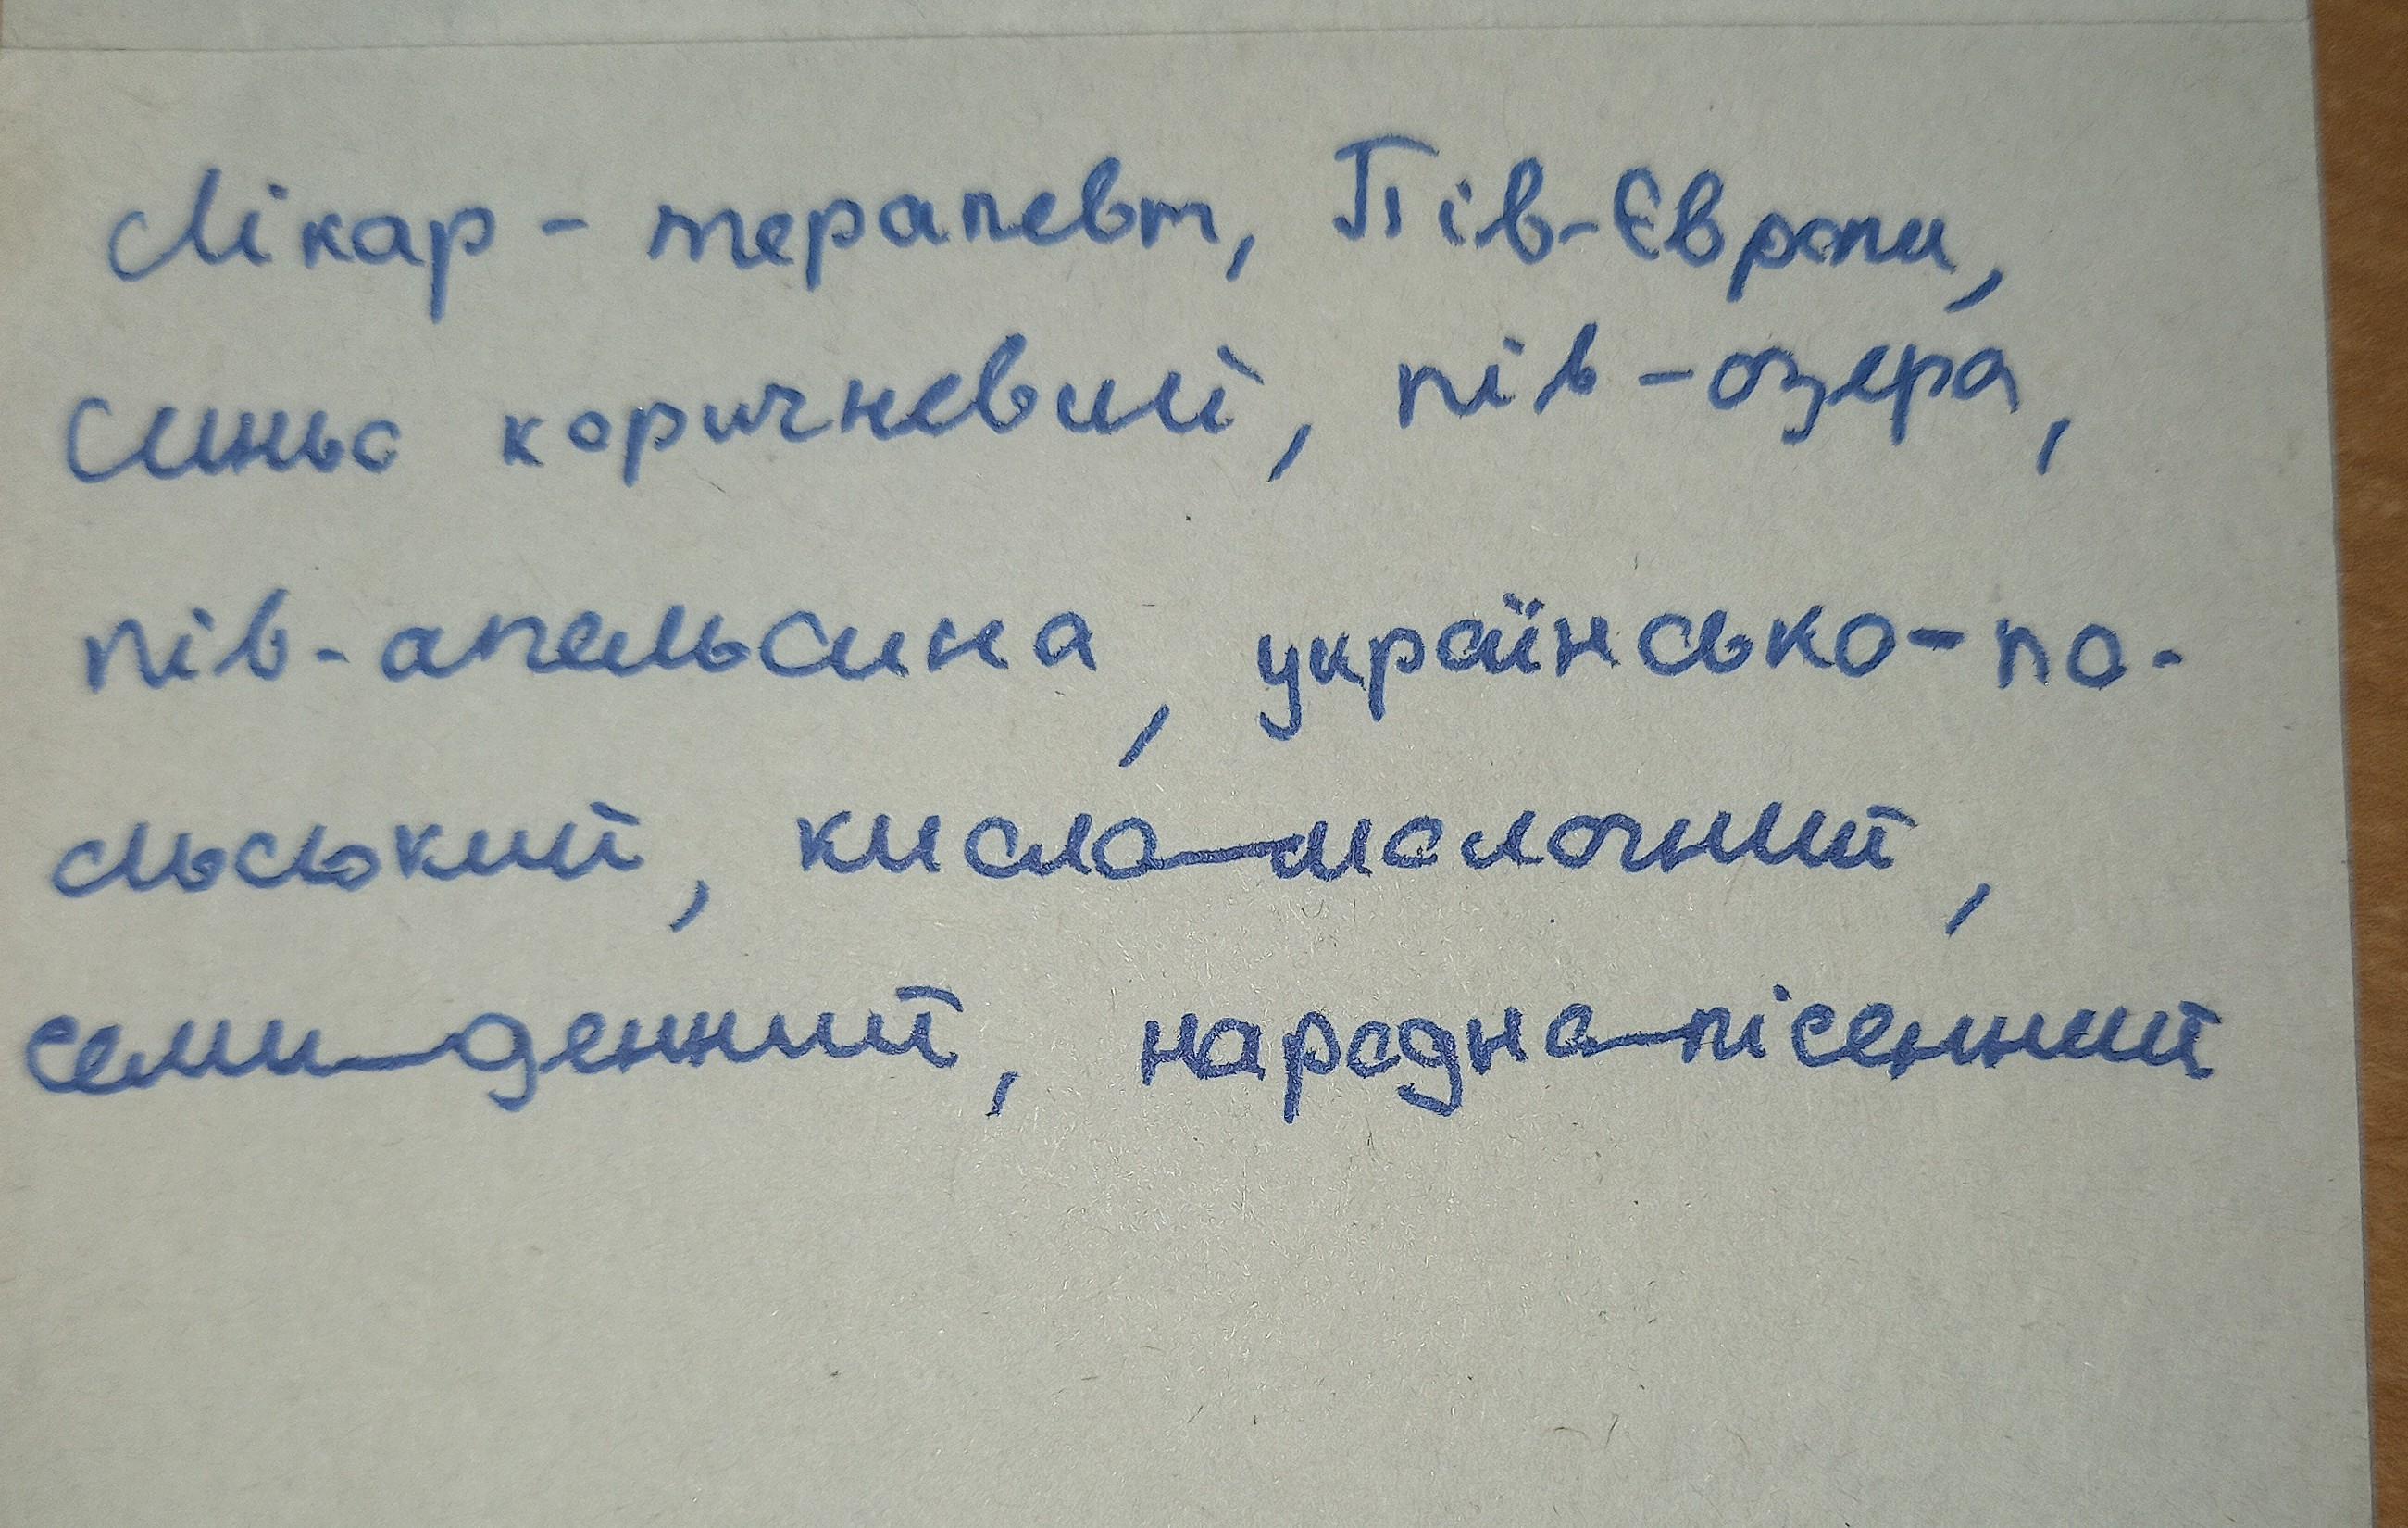 Лікар - терапевт, Пів-Європи,
синьо коричневий, пів-озера,
пів-апельсина, українсько-по-
льський, кисло-молочний,
семи-денний, народно-пісенний